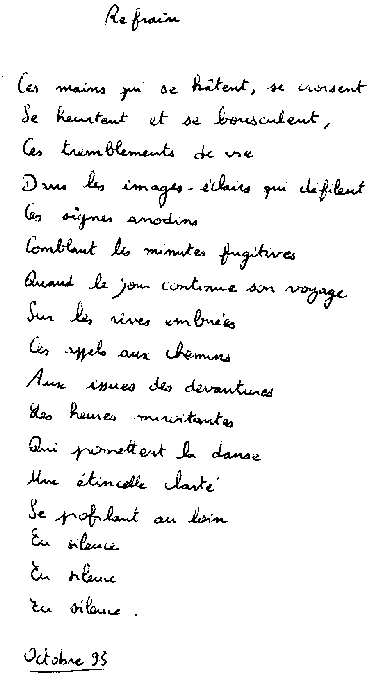 Refrain
Ces mains qui se hâtent, se croisent
Se heurtent et se bousculent,
Ces tremblements de vie
Dans les images-éclairs qui défilent
Ces signes anodins
Comblant les minutes fugitives
Quand le jour continue son voyage
Sur les rives embuées
Ces appels aux chemins
Aux issues des devantures
Des heures miroitantes
Qui promettent la danse
Une étincelle clarté
Se profilant au loin
En silence
En silence
En silence.
Octobre 95